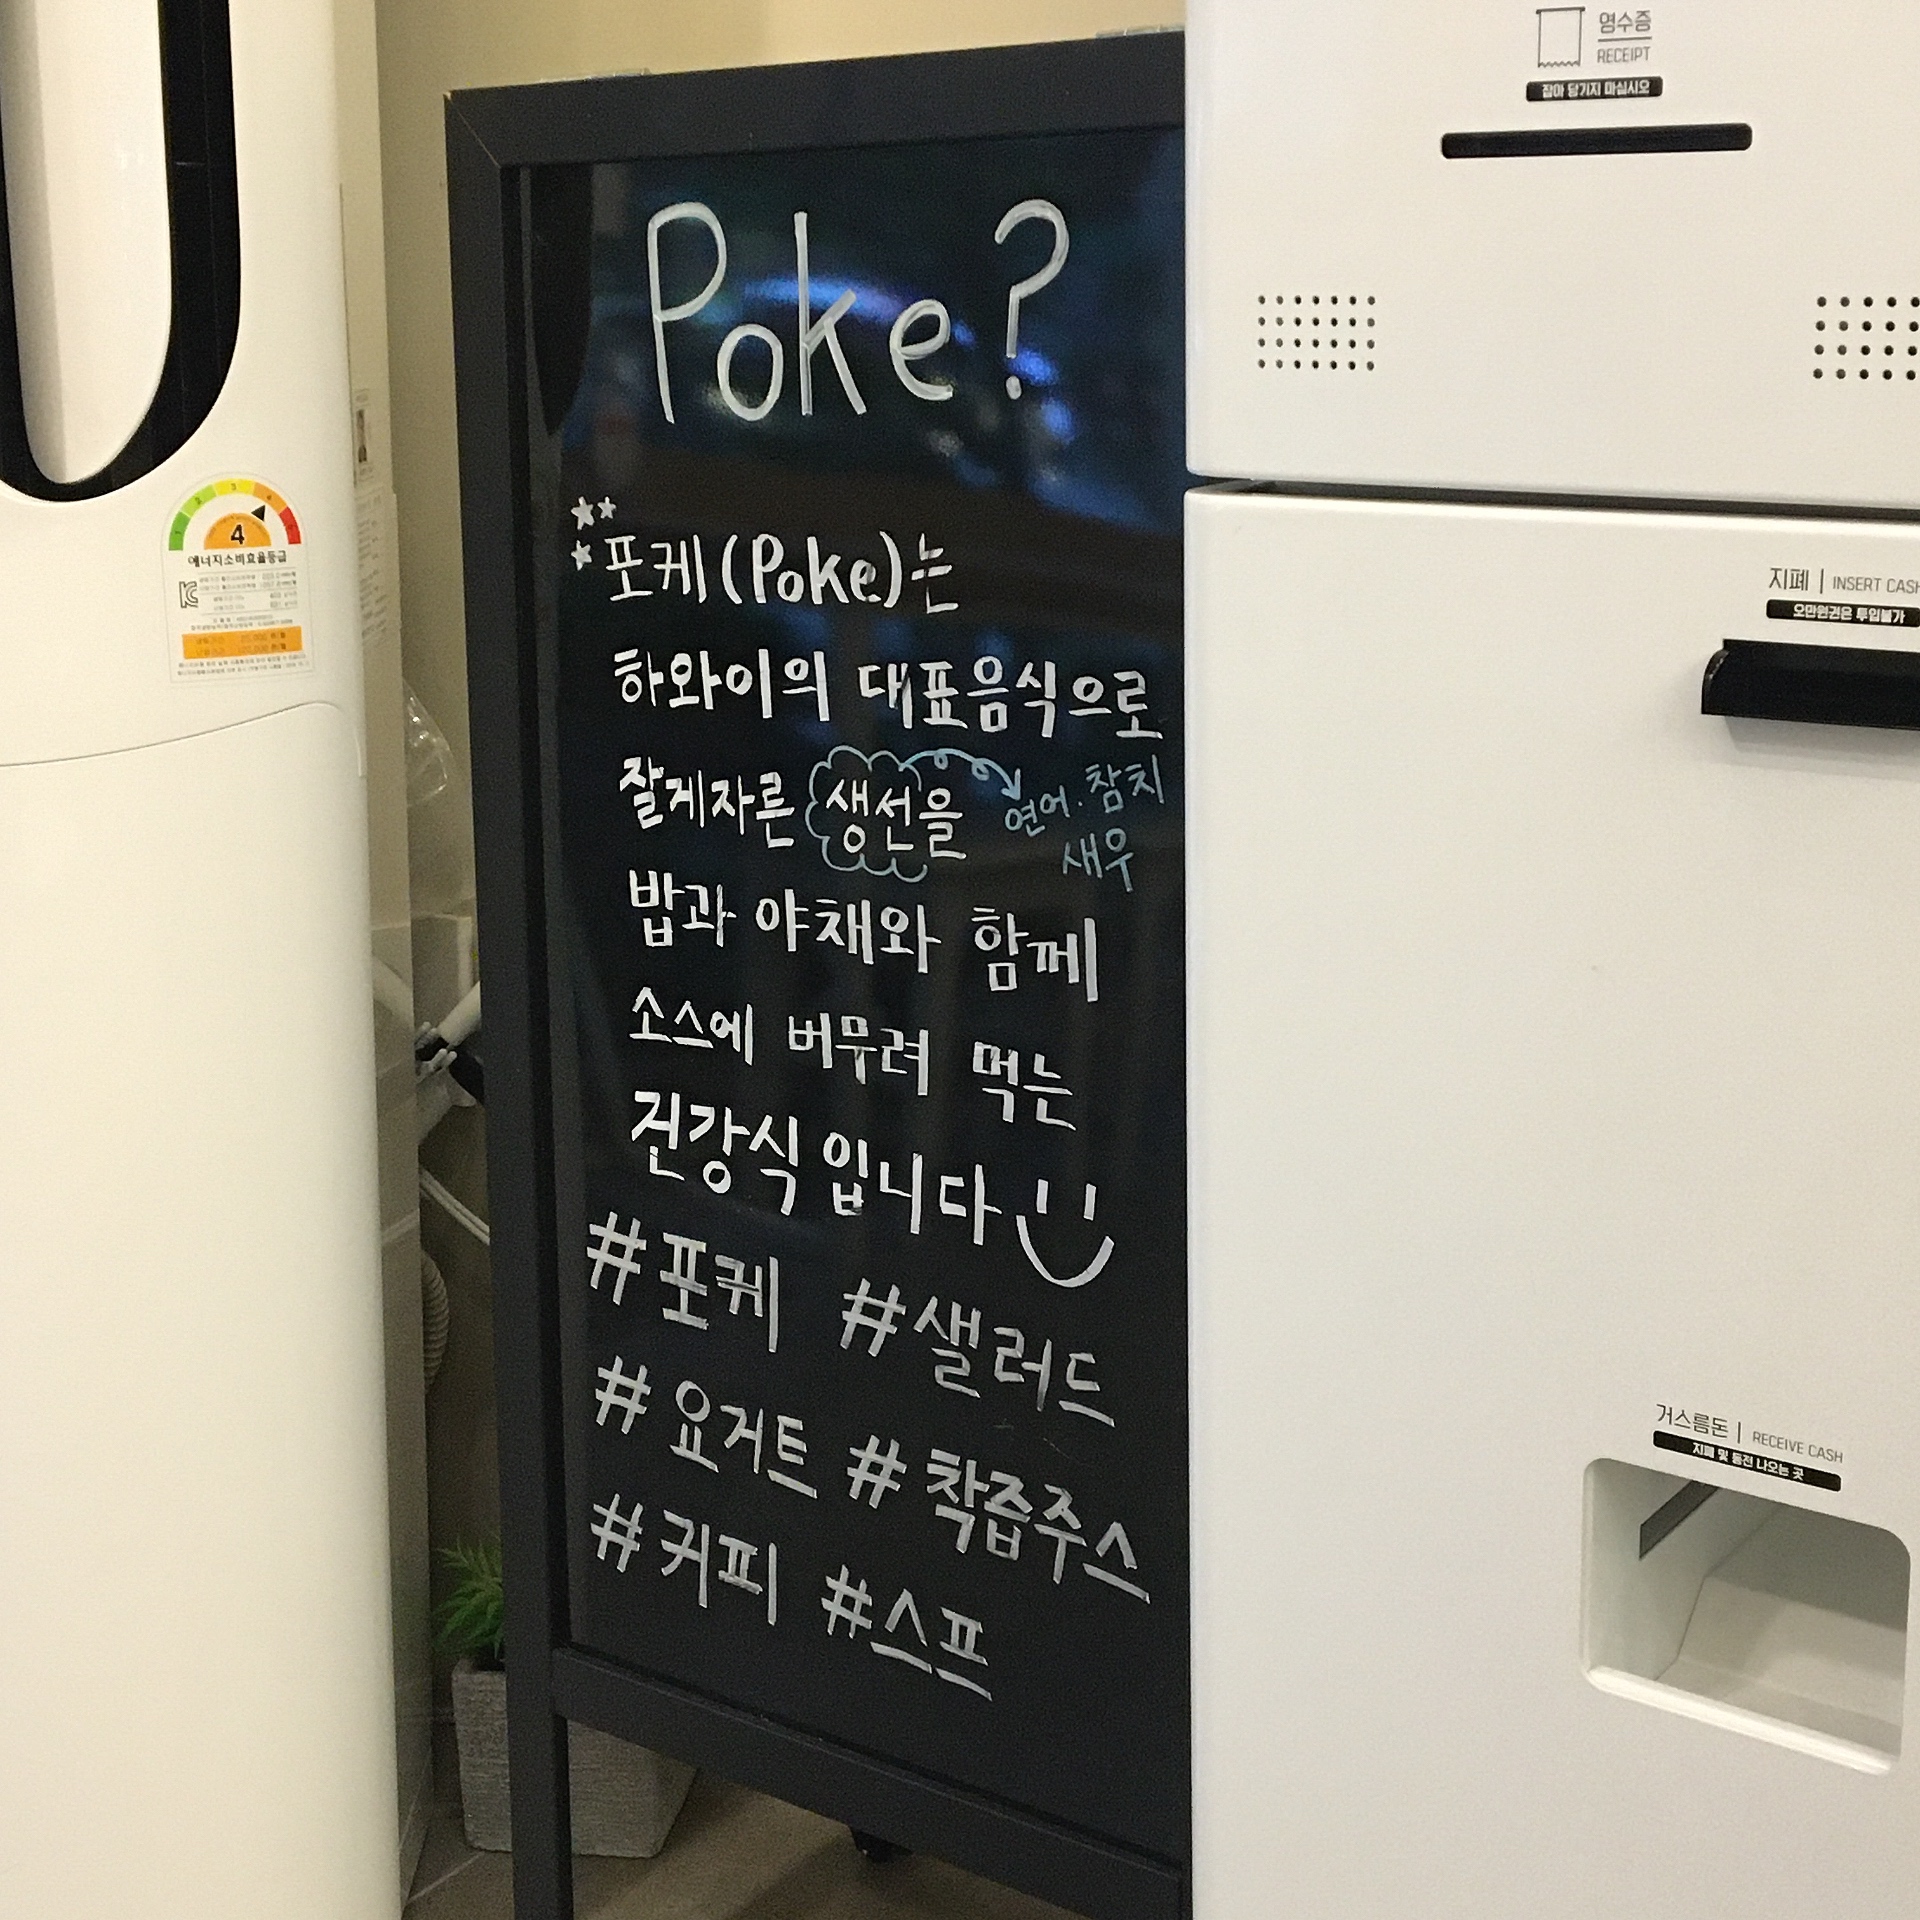 Poke?
포케(Poke)는
하와이의 대표음식으로
잘게자른 생선을
연어·참치
새우
밥과 야채와 함께
소스에 버무려 먹는
건강식 입니다
#포케 #샐러드
#요거트 #착즙주스
#커피 #스프
영수증
RECEIPT
잡아 당기지 마십시오
지폐 | INSERT CASH
오만원권은 투입불가
거스름돈 | RECEIVE CASH
지폐 및 동전 나오는 곳
1 2 3 4
4
에너지소비효율등급